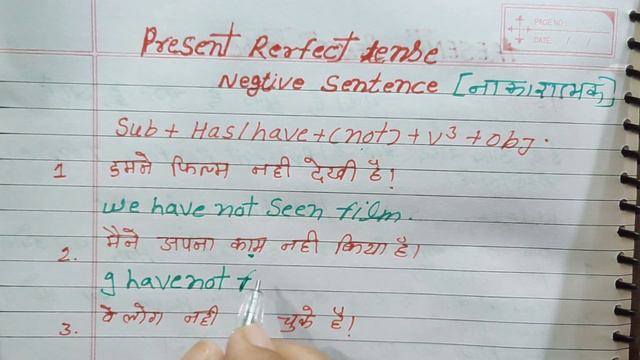 PAGE NO.:
DATE: / /
Present Rerfect tense
Negtive Sentence [नाकारात्मक]
Sub + Has/have + (not) + V³ + Obj.
1 हमने फिल्म नही देखी है।
we have not seen film.
2. मैने अपना काम नही किया है।
I have not
3. वे लोग नही चुके है।